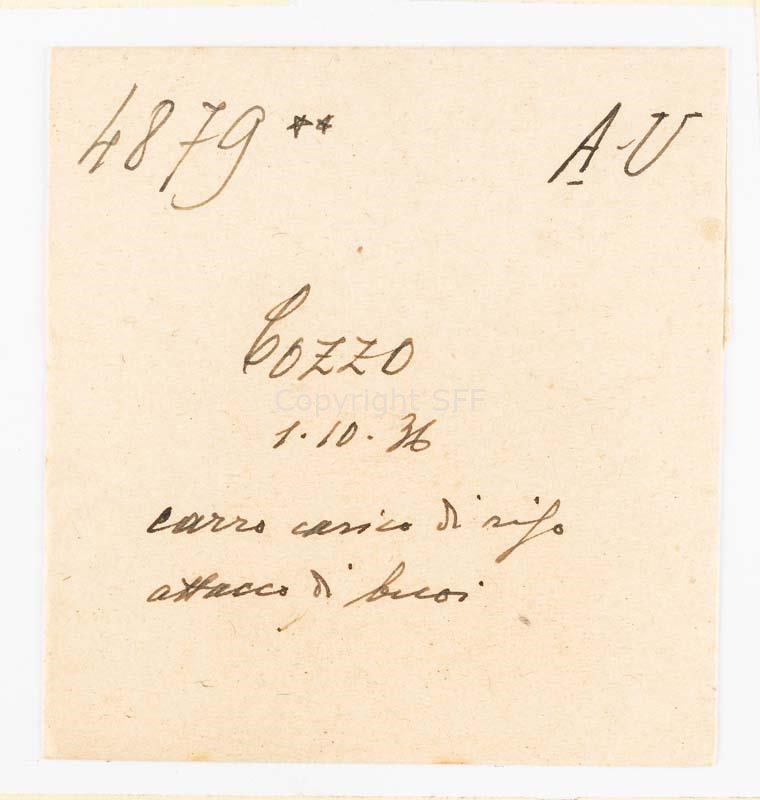 4879** A-U
Cozzo
Copyright SFF
1.10.36
carro carico di riso
attacco di buoi